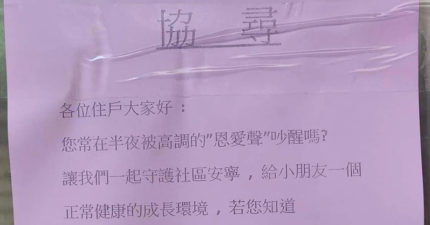 協 尋
各位住戶大家好：
您常在半夜被高調的”恩愛聲”吵醒嗎?
讓我們一起守護社區安寧，給小朋友一個
正常健康的成長環境，若您知道